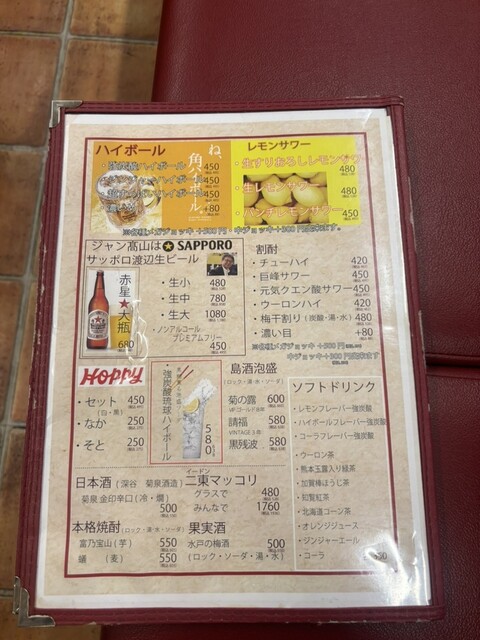 ハイボール
・強炭酸ハイボール 450
450
450
+80
ね、
角ハイボール。
レモンサワー
・生すりおろしレモンサワー
480
・生レモンサワー 480
・パンチレモンサワー 450
ジャン髙山は★SAPPORO
サッポロ渡辺生ビール
赤星★大瓶
680
・生小 480
・生中 780
・生大 1080
・ノンアルコール
プレミアムフリー
450
割酎
・チューハイ 420
・巨峰サワー 450
・元気クエン酸サワー 450
・ウーロンハイ 420
・梅干割り(炭酸・湯・水) 480
・濃い目 +80
HOPPY
・セット 450
(白・黒)
・なか 250
・そと 250
・強炭酸琉球ハイボール
580
島酒泡盛
(ロック・湯・水・ソーダ)
菊の露 600
VIPゴールド8年
請福 580
VINTAGE3年
黒残波 580
ソフトドリンク
・レモンフレーバー強炭酸
・ハイボールフレーバー強炭酸
・コーラフレーバー強炭酸
・ウーロン茶
・熊本玉露入り緑茶
・加賀棒ほうじ茶
・知覧紅茶
・北海道コーン茶
・オレンジジュース
・ジンジャーエール
・コーラ
350
日本酒(深谷 菊泉酒造)
菊泉 金印辛口(冷・燗)
500
イードン
二東マッコリ
グラスで 480
みんなで 1760
本格焼酎(ロック・湯・水・ソーダ)
富乃宝山(芋) 550
(麦) 550
果実酒
水戸の梅酒 500
(ロック・ソーダ・湯・水)